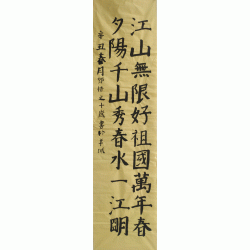 江山無限好祖國萬年春
夕陽千山秀春水一江明
辛丑春月
十歲書於羊城